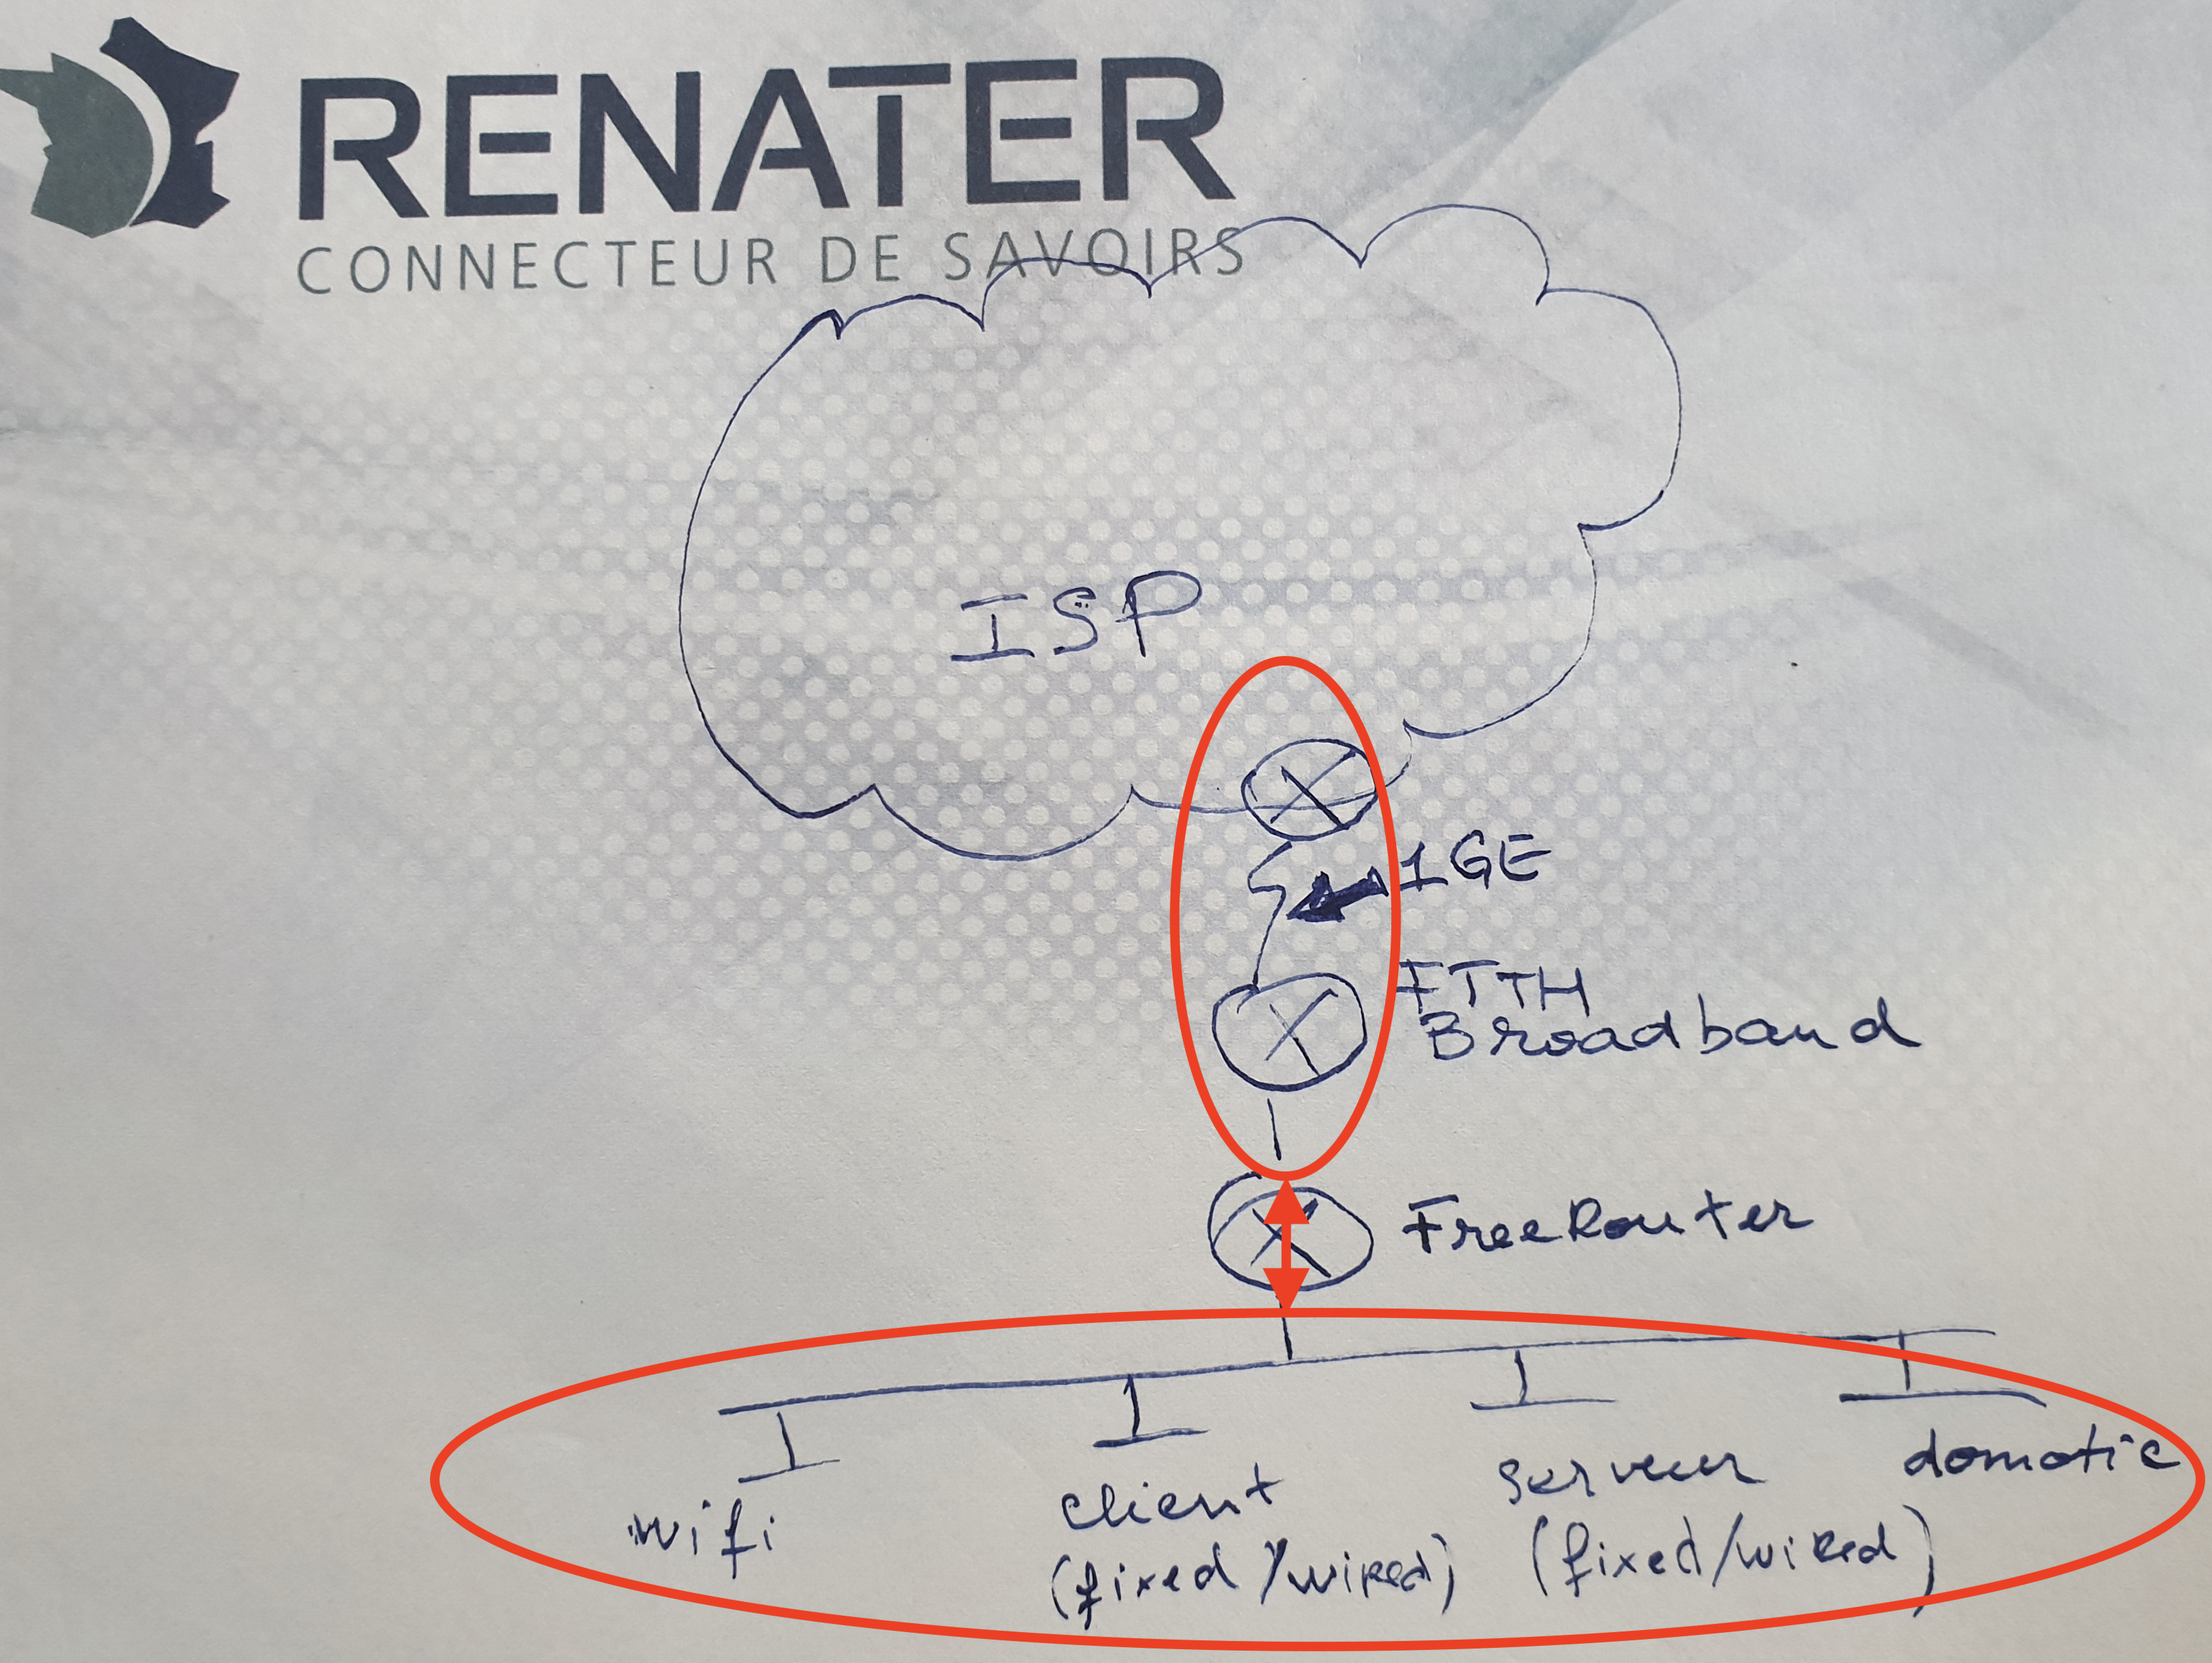 RENATER
CONNECTEUR DE SAVOIRS
ISP
1GE
FTTH
Broadband
FreeRouter
wifi
client
(fixed/wired)
serveur
(fixed/wired)
domotic